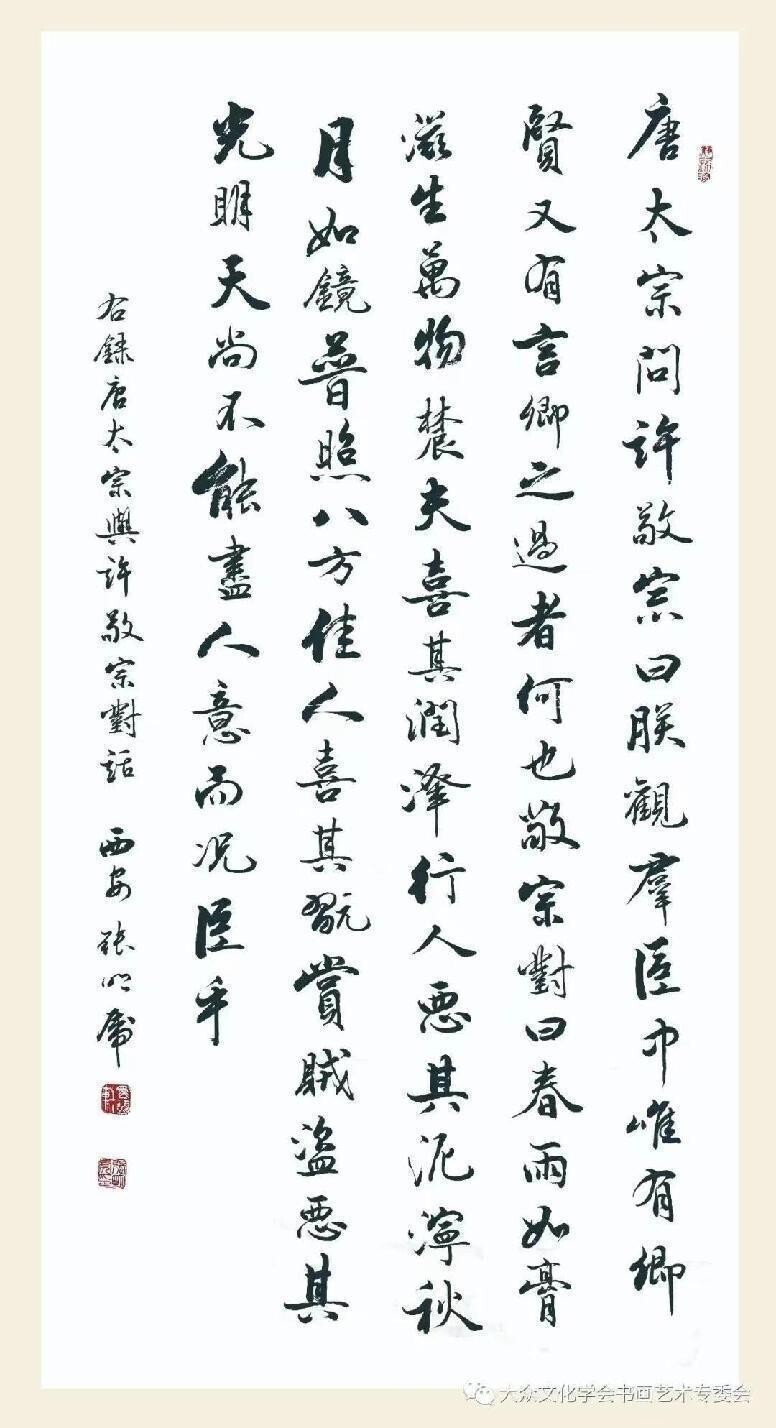 唐太宗問許敬宗曰朕觀羣臣中唯有卿
賢又有言卿之過者何也敬宗對曰春雨如膏
滋生萬物農夫喜其潤澤行人惡其泥濘秋
月如鏡普照八方佳人喜其翫賞賊盜惡其
光明天尚不能盡人意而况臣乎
右録唐太宗與許敬宗對話 西安 張
大众文化学会书画艺术专委会